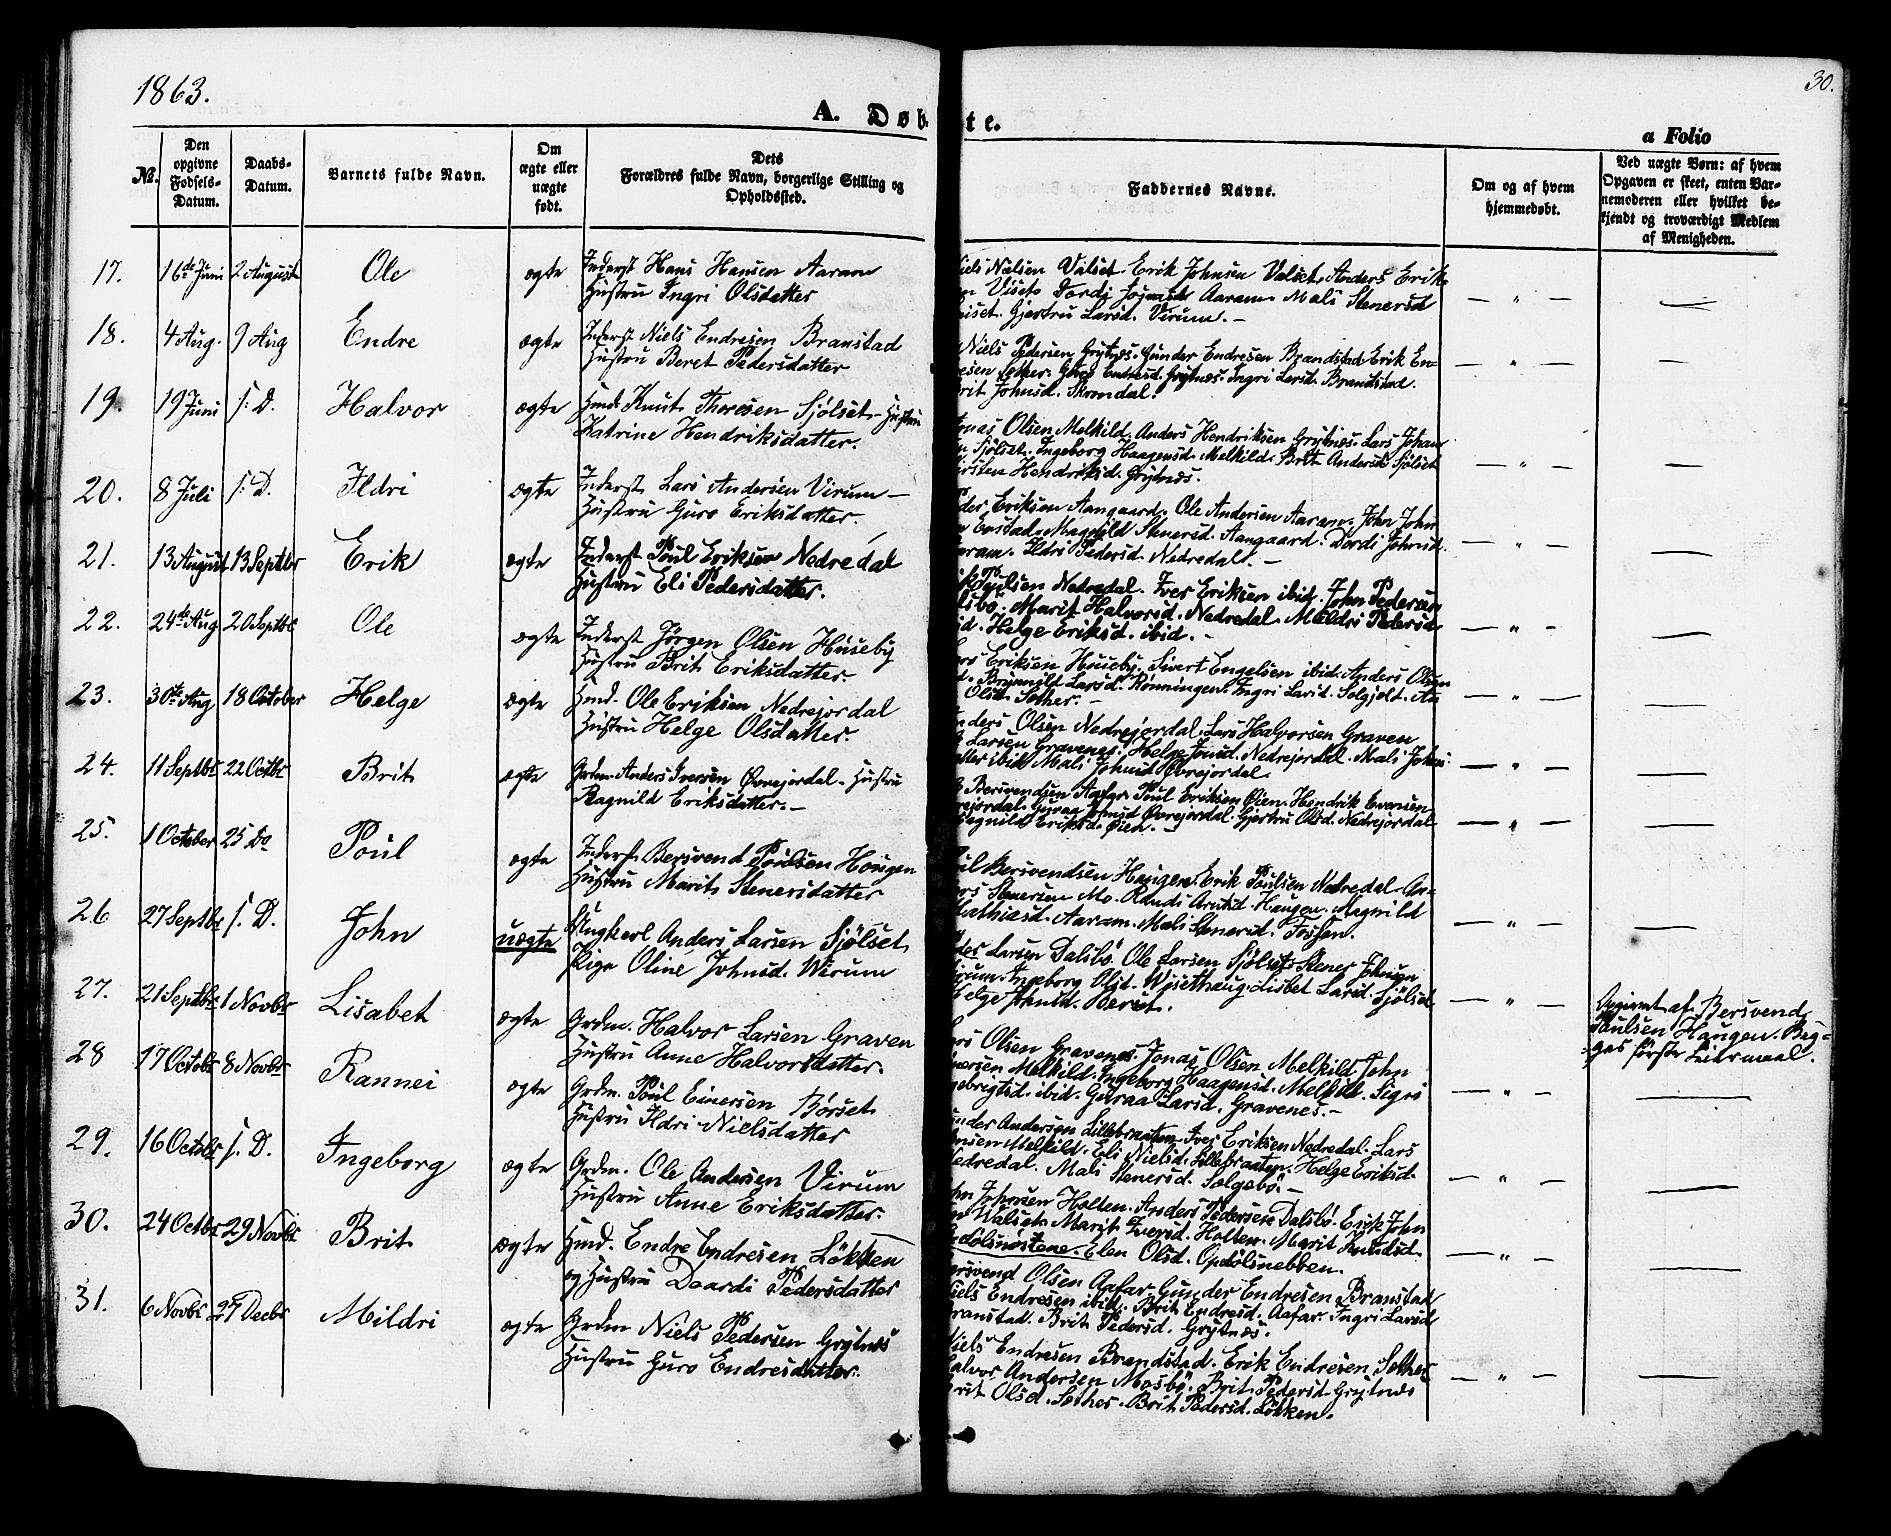 1863.
30.
A. Døb
te.
a Folio
No.
Den opgivne Fødsels-Datum.
Daabs-Datum.
Barnets fulde Navn.
Om ægte eller uægte født.
Dets Forældres fulde Navn, borgerlige Stilling og Opholdssted.
Faddernes Navne.
Om og af hvem hjemmedøbt.
Ved uægte Børn: af hvem Opgaven er skeet, enten Barnemoderen eller hvilket bekjendt og troværdigt Medlem af Menigheden.
17. 16de Juni 2 Auguste Ole ægte Inderst Hans Hansen Aaram
Hustru Ingri Olsdatter
iels Nielsen Valset. Erik Johnsen Valset. Anders Erik-
Aaram. Mali Stenersd
Gjertru Larsd. Virum. — — " —
18. 4 Aug. 9 Aug Endre ægte Inderst Niels Endresen Branstad
Hustru Beret Pedersdatter
Niels Pedersen Grytnæs. Gunder Endresen Brandstad Erik En-
resen Sæther. Endresd. Grytnæs. Ingri Larsd. Brandstad.
Brit Johnsd. Skrondal. — " —
19. 19 Juni s. D. Halvor ægte Hmd Knut Thoresen Sjølset Hustru
Katrine Hendriksdatter.
onas Olsen Melkild. Anders Hendriksen Grytnæs. Lars Johan
n Sjølset. Ingeborg Haagensd. Melkild. Brit Andersd Sjølset
irsten Hendriksd. Grytnæs. — " —
20. 8 Juli s. D. Ildri ægte Inderst Lars Andersen Virum —
Hustru Guro Eriksdatter.
der Eriksen Aangaard. Ole Andersen Aaram. John John
Magnild Stenersd. Aangaard. Dordi Johnsd.
aram. Ildri Pedersd. Nedredal. — — " —
21. 13 August 13 Septbr Erik ægte Inderst Poul Eriksen Nedredal
Hustru Eli Pedersdatter.
ik Poulsen Nedredal. Iver Eriksen ibid. John Pedersen
lsbø. Marit Halvorsd. Nedredal. Mildri Pedersd.
id. Helge Eriksd. ibid. — — " —
22. 24de Aug 20 Septbr Ole ægte Inderst Jørgen Olsen Huseby
Hustru Brit Eriksdatter.
ars Eriksen Huseby. Sivert Engelsen ibid. Anders Olsen
Brynnild Larsd. Rønningen. Ingri Larsd. Solgjolt. An
Olsd. Sæther. — — " —
23. 30te Aug 18 October Helge ægte Hmd. Ole Eriksen Nedrejordal
Hustru Helge Olsdatter.
nders Olsen Nedrejordal. Lars Halvorsen Graven
Larsen Gravenes. Helge Jonsd. Nedrejordal. Mali Johns-
tter ibid. Mali Johnsd Øvrejordal. — " —
24. 11 Septbr 22 Octbr Brit ægte Grdm. Anders Iversen Øvrejordal. Hustru
Ragnild Eriksdatter. —
Bersvendsen Aafar. Poul Eriksen Øien. Hendrik Iversen
vrejordal. Guraa Johnsd Øvrejordal. Gjertru Olsd. Nedrejordal
Ragnild Eriksd. Øien. — — " —
25. 1 October 25 Do Poul ægte Inderst Bersvend Poulsen Hougen
Hustru Marit Stenersdatter
oul Bersvendsen Haugen. Erik Poulsen Nedredal. An-
ers Stenersen Mo. Randi Arntsd. Haugen. Magnild
Mathiasd. Aaram. Mali Stenersd. Fossen. — " —
26 27 Septbr s. D. John uægte Ungkarl Anders Larsen Sjølset
Pige Oline Johnsd. Wirum
eder Larsen Dalsbø. Ole Larsen Sjølset. Stener Johnsen
Virum. Ingeborg Olsd. Wisethaug. Lisbet Larsd. Sjølset
Helge Johnsd. Berset. — " —
Opgivet af Bersvend
Paulsen Haugen. Beg-
ges første Leiermaal.
27. 21 Septbr 1 Novbr Lisabet ægte Grdm. Halvor Larsen Graven
Hustru Anne Halvorsdatter.
ars Olsen Gravenes. Jonas Olsen Melkild John
Melkild. Ingeborg Haagensd. Melkild. Sigri
ngebrigtsd. ibid. Guraa Larsd. Gravenes. — — " —
28 17 Octobr 8 Novbr Rannei ægte Grdm. Poul Einersen Børset
Hustru Ildri Nielsdatter
under Andersen Lillebraaten. Iver Eriksen Nedredal. Lars
Melkild. Eli Nielsd. Lillebraaten. Helge Eriksd.
Nedredal. Mali Stenersd. Solgebø. — — " —
29. 16 Octobr s. D. Ingeborg ægte Grdm. Ole Andersen Virum
Hustru Anne Eriksdatter.
ohn Johnsen Holten. Anders Pedersen Dalsbø. Erik John
n Walset. Marit Iversd. Holten. Marit Knudsd.
Opdølsnøstene. Elen Olsd. Opdølsnebben. — " —
30. 24 Octbr 29 Novbr Brit ægte Hmd. Endre Endresen Løkken
og Hustru Daardi Pedersdatter
ersvend Olsen Aafar. Gunder Endresen Branstad
Niels Endresen ibid. Brit Endresd. Aafar. Ingri Larsd
Branstad. Brit Pedersd. Grytnæs.
31. 6 Novbr 27 Decbr Mildri ægte Grdm Niels Pedersen Grytnæs
Hustru Guro Endresdatter.
Niels Endresen Brandstad. Erik Endresen Sæther
Halvor Andersen Mosbø. Brit Pedersd. Grytnæs
Brit Olsd. Sæther. Brit Pedersd. Løkken. — " —